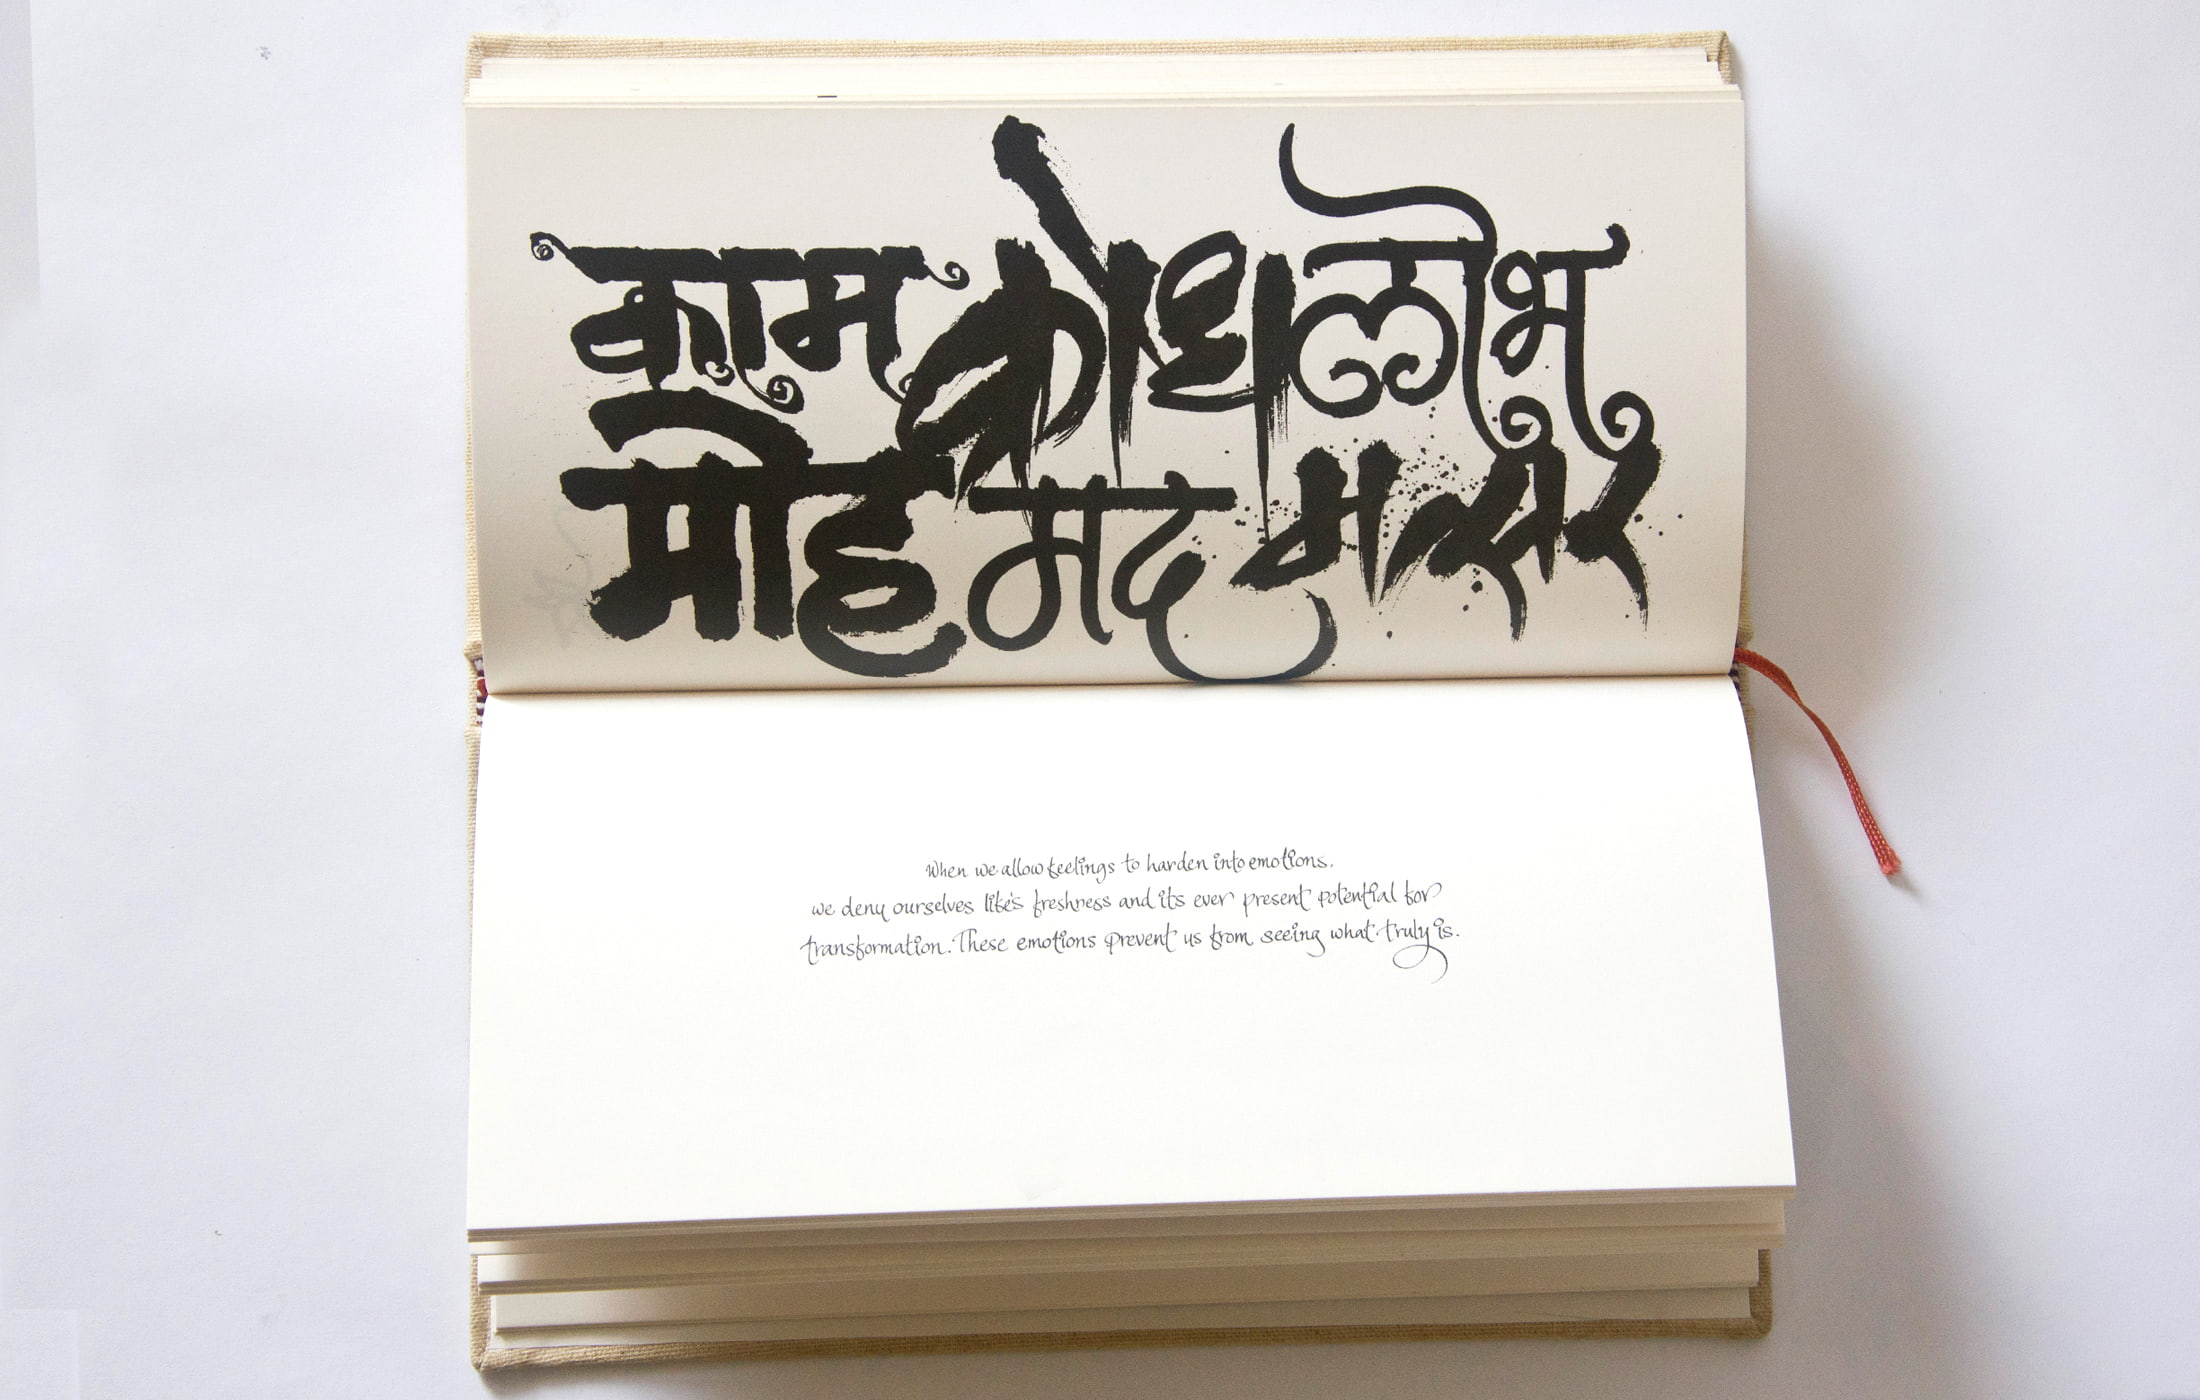 काम क्रोध लोभ
मोह मद मत्सर
When we allow feelings to harden into emotions.
we deny ourselves life's freshness and its ever present potential for
transformation. These emotions prevent us from seeing what truly is.